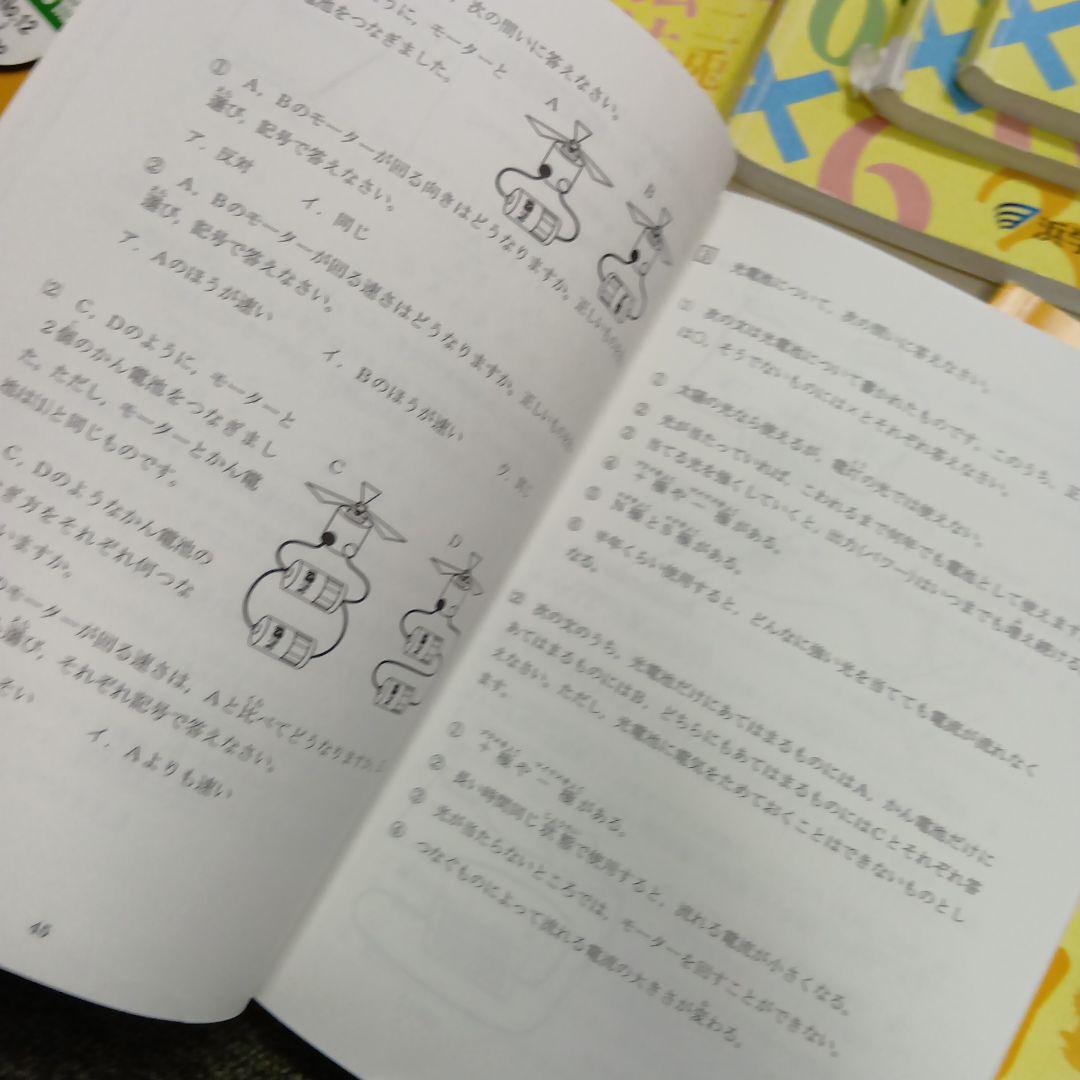 ，次の問いに答えなさい。
ように，モーターと
電池をつなぎました。
A
B
① A，Bのモーターが回る向きはどうなりますか。正しいものを
選び，記号で答えなさい。
ア．反対 イ．同じ
② A，Bのモーターが回る速さはどうなりますか。正しいものを
選び，記号で答えなさい。
ア．Aのほうが速い イ．Bのほうが速い ウ．
② C，Dのように，モーターと
2個のかん電池をつなぎまし
た。ただし，モーターとかん電
池は⑴と同じものです。
C
D
C，Dのようなかん電池の
なぎ方をそれぞれ何つな
いますか。
のモーターが回る速さは，Aと比べてどうなりますか。
選び，それぞれ記号で答えなさい。
そい イ．Aよりも速い
46
光電池について，次の問いに答えなさい。
① 次の文は光電池について書かれたものです。このうち，正
は○，そうでないものには×とそれぞれ答えなさい。
① 太陽の光なら使えるが，電灯の光では使えない。
② 光が当たっていれば，こわれるまで何年でも電池として使えます
③ 当てる光を強くしていくと，出力(パワー)はいつまでも増え続ける
④ ＋極や－極がある。
⑤ N極とS極がある。
⑥ 半年くらい使用すると，どんなに強い光を当てても電流が流れなく
なる。
② 次の文のうち，光電池だけにあてはまるものにはA，かん電池だけに
あてはまるものにはB，どちらにもあてはまるものにはCとそれぞれ答
えなさい。ただし，光電池に電気をためておくことはできないものとし
ます。
① ＋極や－極がある。
② 長い時間同じ状態で使用すると，流れる電流が小さくなる。
③ 光が当たらないところでは，モーターを回すことができない。
④ つなぐものによって流れる電流の大きさが変わる。
浜学